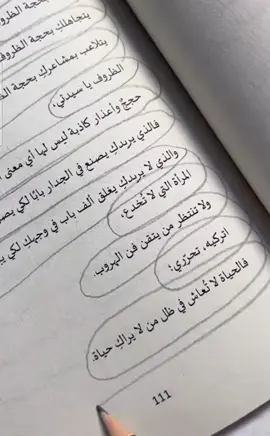 بحجة الظروف
يتجاهلك بحجة الظروف
يتلاعب بمشاعرك بحجة الظ
الظروف يا سيدتي.
حججٌ وأعذار كاذبة ليس لها أي معنى
فالذي يريدكِ يصنع في الجدار بابًا لكي يص
والذي لا يريدكِ يغلق ألف باب في وجهكِ لكي
المرأة التي لا تُخدع،
ولا تنتظر من يتقن فن الهروب.
اتركيه، تحرّري.
فالحياة لا تُعاش في ظل من لا يراكِ حياة
111